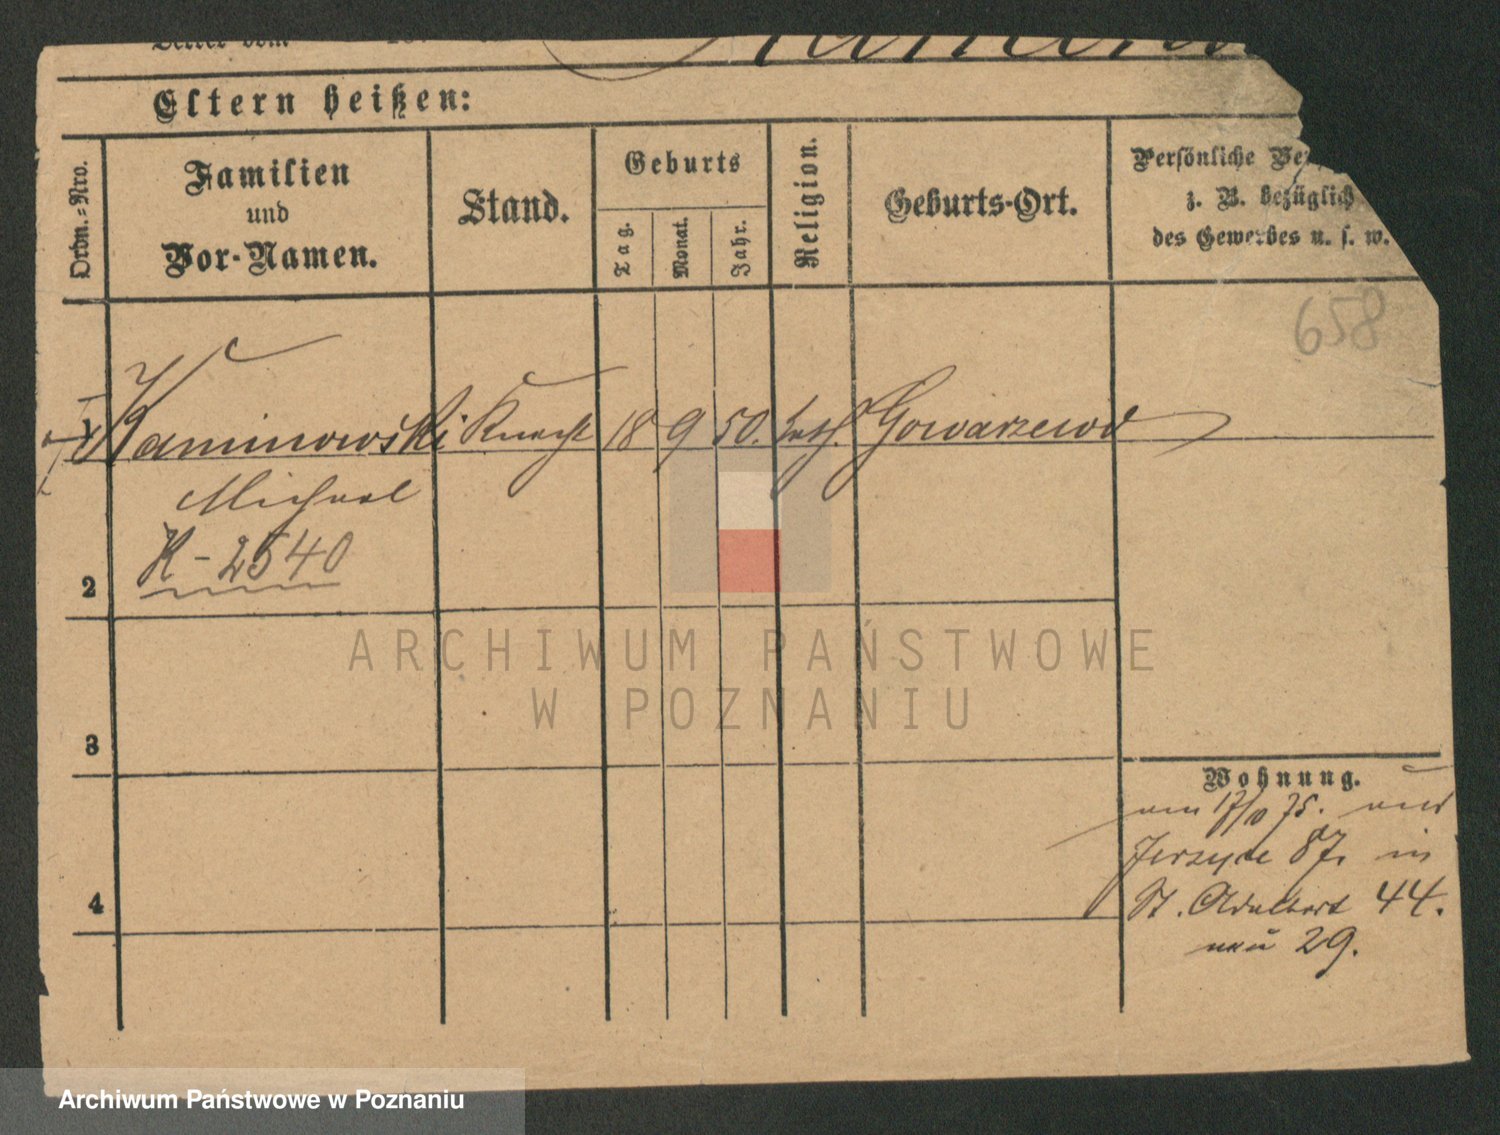 Eltern heißen:
Ordn.=Nro.
Familien
und
Vor-Namen.
Stand.
Geburts
Tag.
Monat.
Jahr.
Religion.
Geburts-Ort.
Persönliche
z. B. bezüglich
des Gewerbes u. s. w.
658
1 Kaminowski Knecht 18 9 50. kath. Gowarzewo
Michael
K-2540
2
3
4
Wohnung.
am 17/10 75. aus
Jerzyce 87. in
St. Adalbert 44.
neu 29.
ARCHIWUM PAŃSTWOWE
W POZNANIU
Archiwum Państwowe w Poznaniu